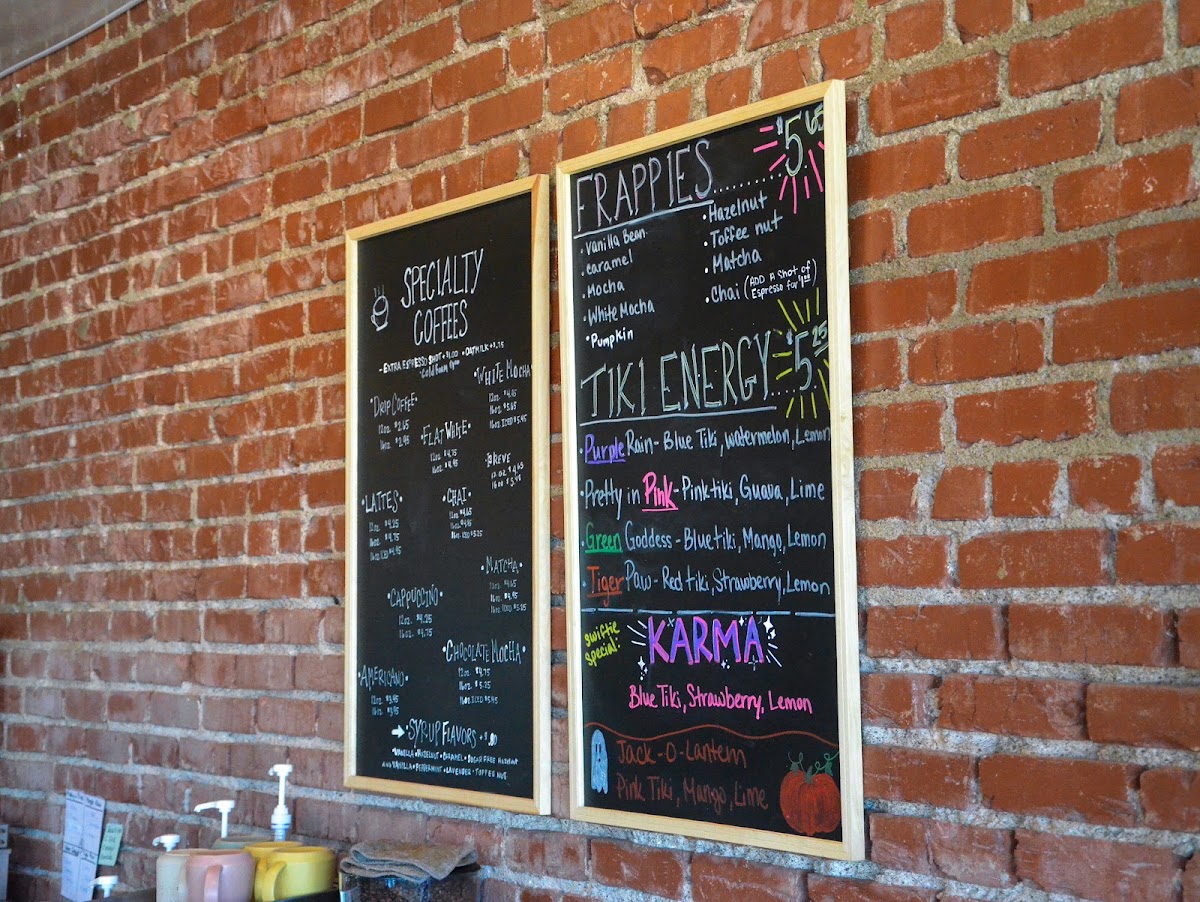 SPECIALTY
COFFEES
EXTRA ESPRESSO SHOT • $1.00 • OATMILK •
Cold Foam
• DRIP COFFEE •
12oz. $2.65
16oz $2.95
• FLAT WHITE •
12oz $4.75
• WHITE MOCHA •
12oz $4.95
16oz $5.65
16oz ICED $5.95
• BREVE
• LATTES •
12oz. $4.25
16oz. $4.75
16oz ICED $4.95
• CHAI •
12oz $4.65
16oz $4.95
16oz ICED $5.25
• MATCHA •
12oz $4.65
16oz $4.95
16oz ICED $5.25
• CAPPUCCINO
12oz $4.25
16oz. $4.75
• CHOCOLATE MOCHA •
12oz $4.75
16oz $5.25
16oz ICED $5.45
• AMERICANO •
12oz $3.45
16oz $3.95
→ SYRUP FLAVORS + $.80
• VANILLA • HAZELNUT • CARAMEL • SUGAR FREE HAZELNUT
AND VANILLA • PEPPERMINT • LAVENDER • TOFFEE NUT
FRAPPIES........ $5.65
• Vanilla Bean
• caramel
• Mocha
• White Mocha
• Pumpkin
• Hazelnut
• Toffee nut
• Matcha
• Chai (ADD A Shot of
Espresso for $1.00)
TIKI ENERGY... $5.25
• Purple Rain - Blue Tiki, watermelon, Lemon
• Pretty in Pink - Pink-tiki, Guava, Lime
• Green Goddess - Blue tiki, Mango, Lemon
• Tiger Paw - Red tiki, Strawberry, Lemon
swiftie
special:
KARMA
Blue Tiki, Strawberry, Lemon
Jack-O-Lantern
Pink Tiki, Mango, Lime